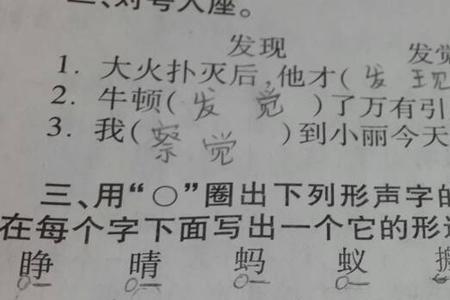 二、对号入座。
发现 发觉
1. 大火扑灭后,他才(发现
2. 牛顿(发觉)了万有引
3. 我(察觉)到小丽今天
三、用“○”圈出下列形声字的
在每个字下面写出一个它的形
睁 晴 蚂 蚁